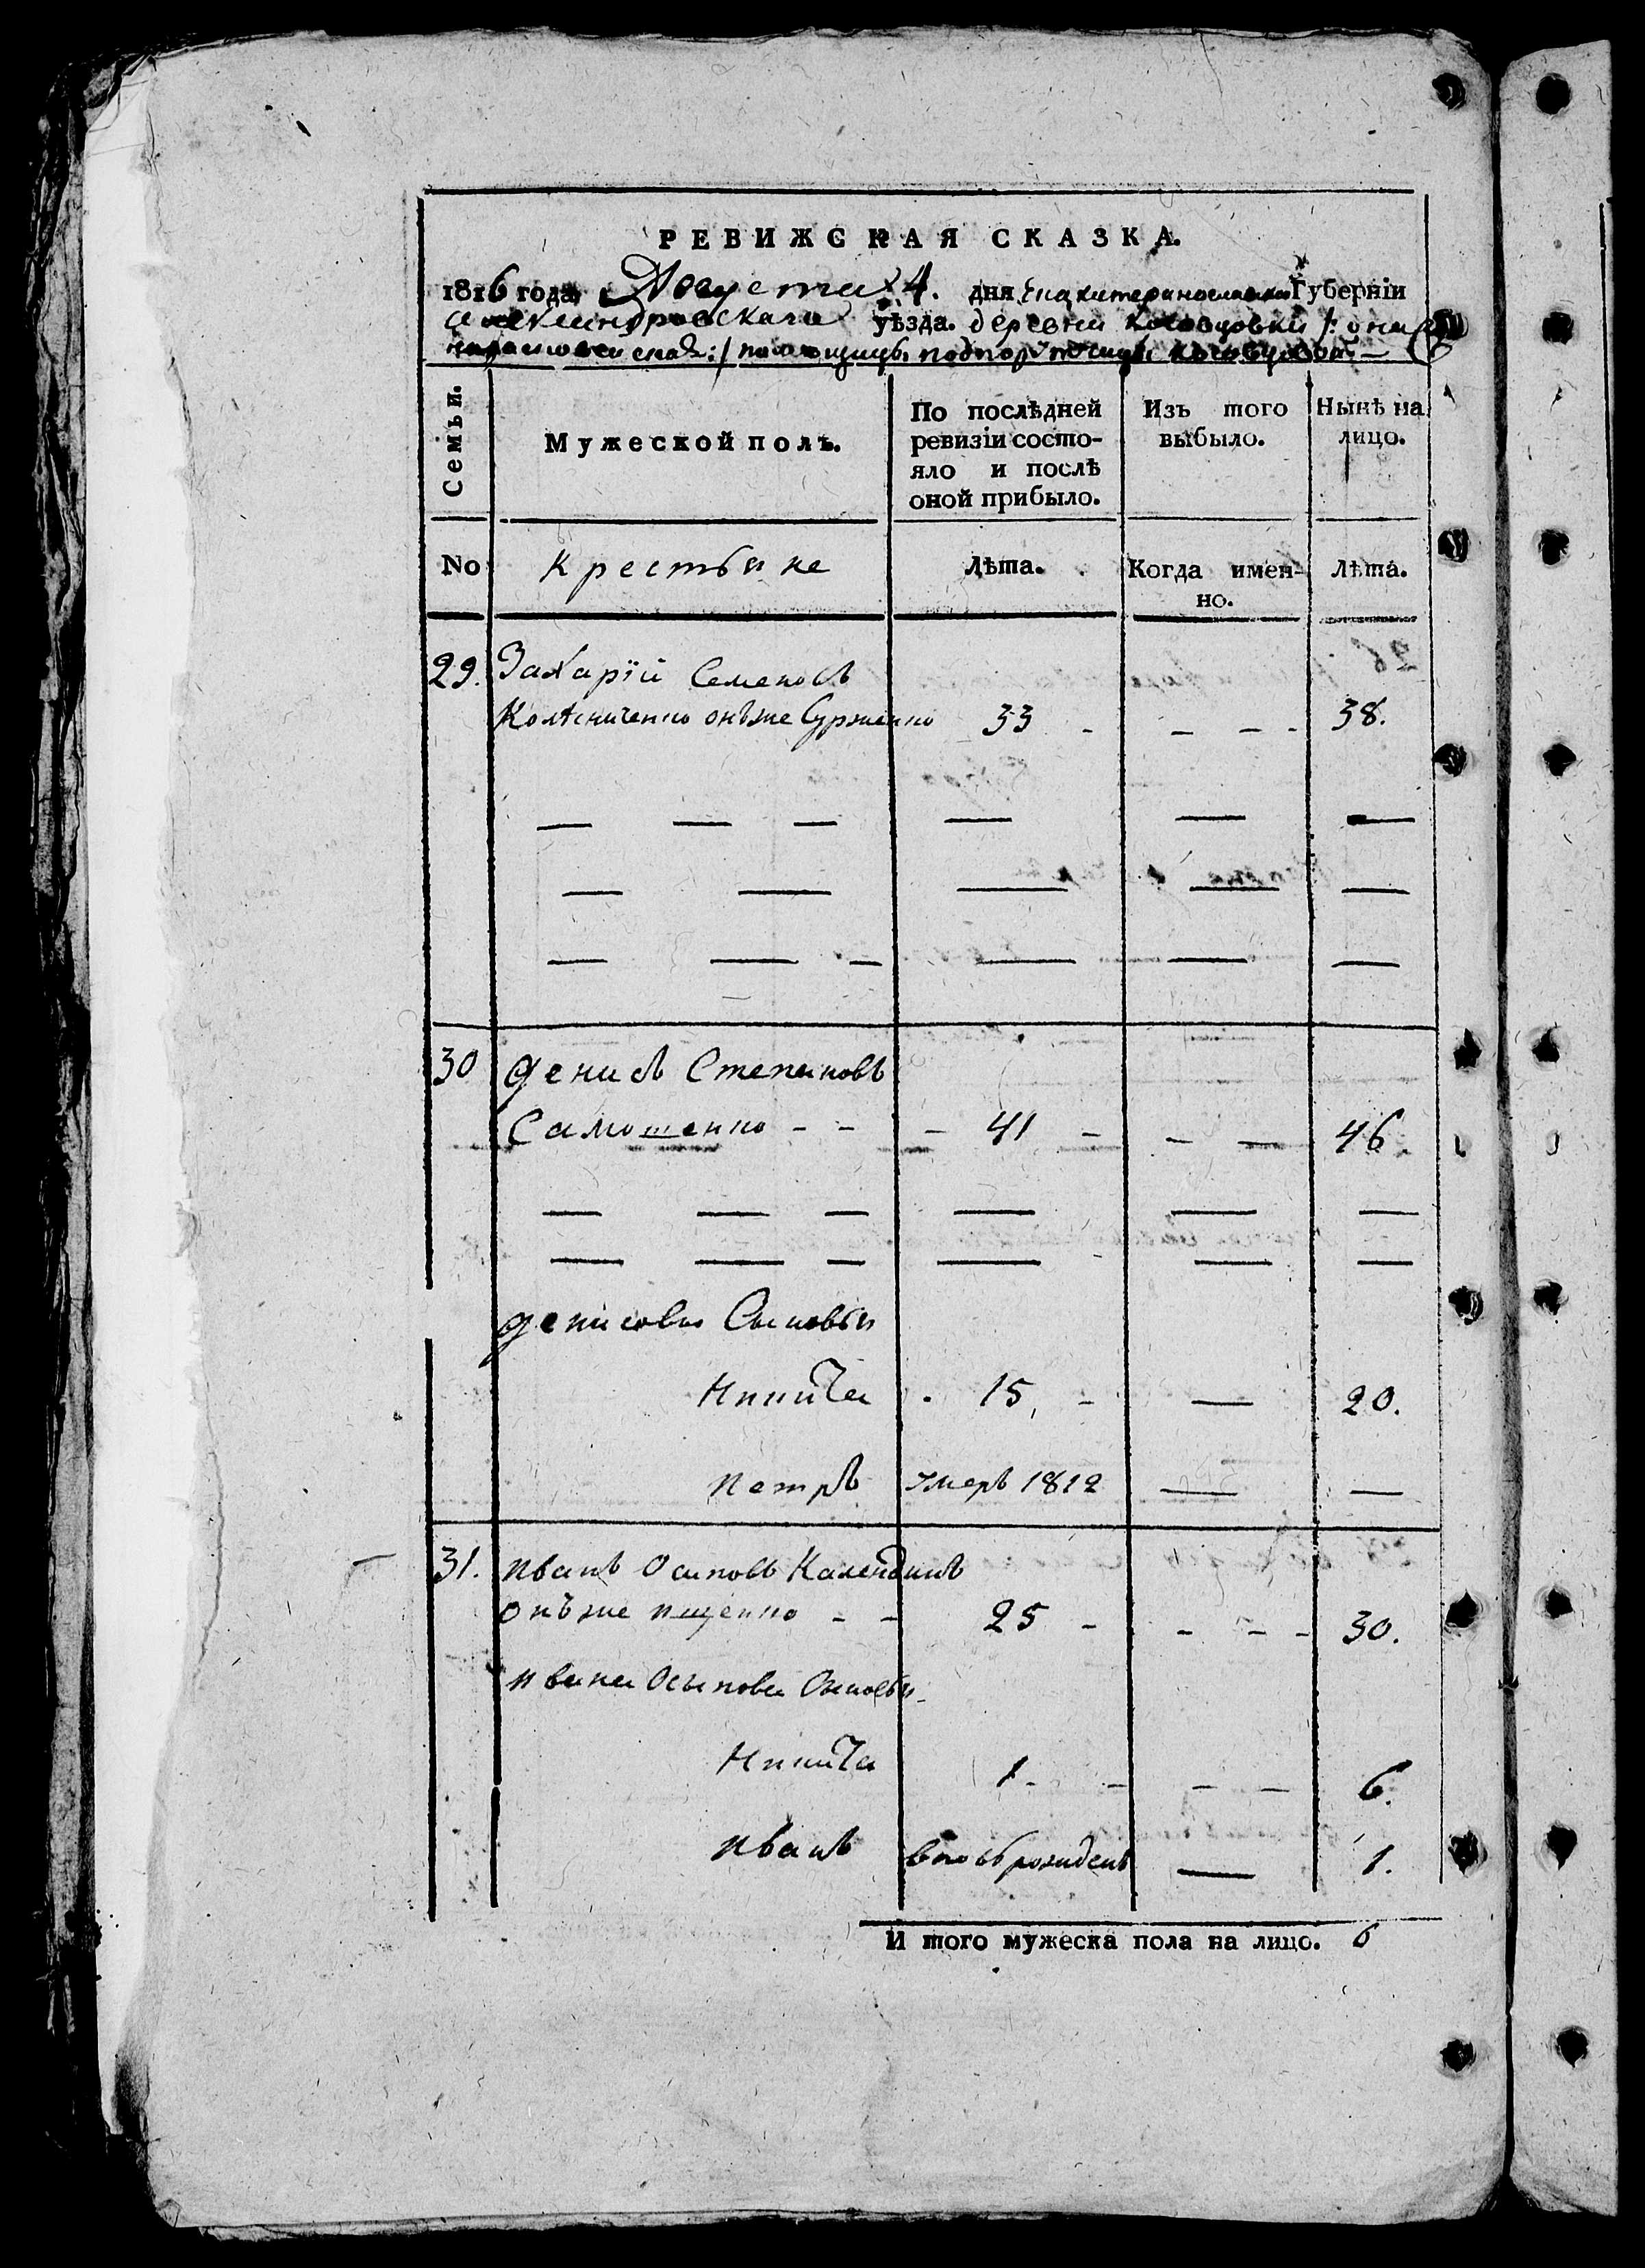 РЕВИЖСКАЯ СКАЗКА.
1816 года, Августа 4. дня Екатеринославской Губерніи
Александровскаго уѣзда. деревни
помѣщицы подпорутчицы
Семьи.
Мужеской полъ.
По послѣдней
ревизіи состо-
яло и послѣ
оной прибыло.
Изъ того
выбыло.
Нынѣ на
лицо.
No
Крестьяне
Лѣта.
Когда имен-
но.
Лѣта.
29. Захарїй Семеновъ
Колѣсниченко онъже Сурженко 33 - - - - 38.
30 Денисъ Степановъ
Самошенко - - - 41 - - - 46
Денисовы Сыновья
Никита 15, - — 20.
Петръ умеръ 1812 — —
31. Иванъ Осиповъ Календинъ
онъже Ищенко - - 25 - - - - 30.
Ивана Осипова Сыновья
Никита 1 - - - - 6.
Иванъ вновь рожденъ — 1.
И того мужеска пола на лицо. 6